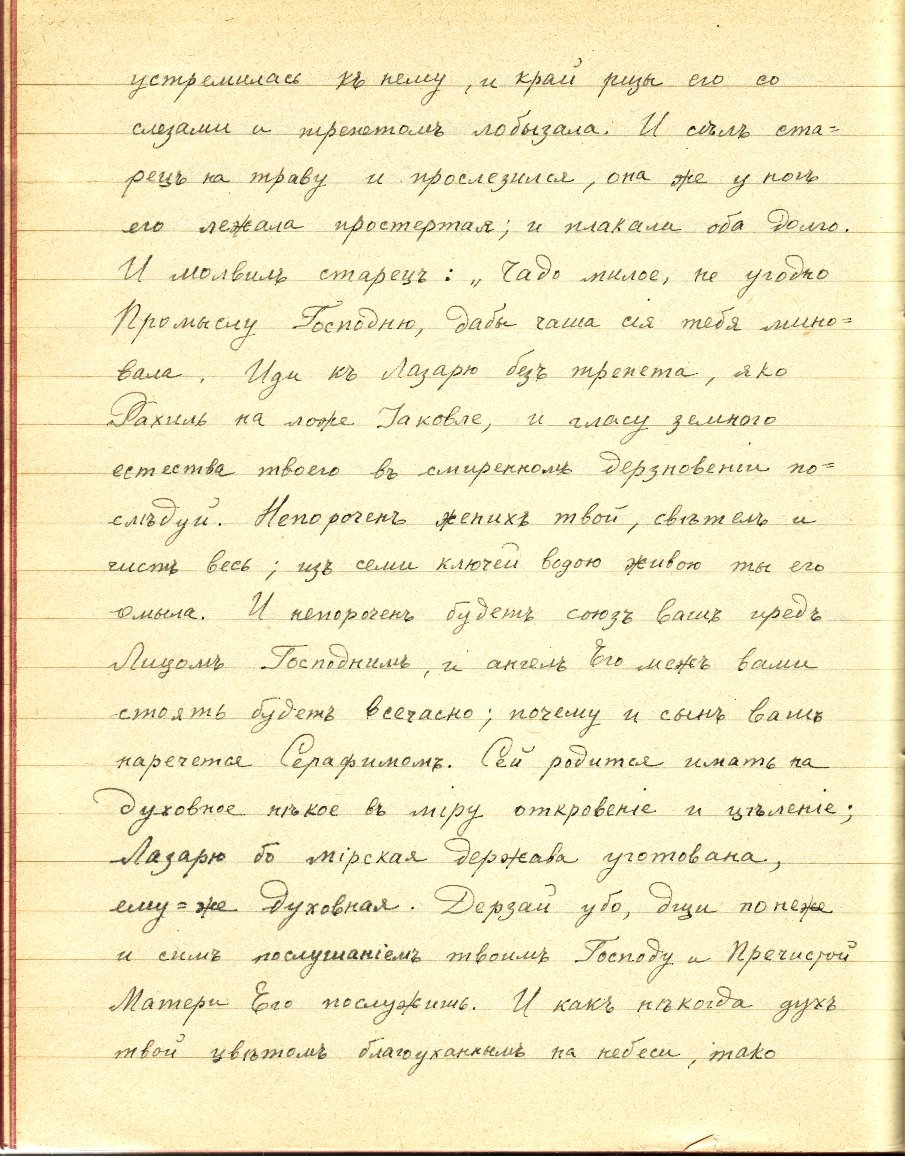 устремилась къ нему, и край ризы его со
слезами и трепетомъ лобызала. И сѣлъ ста=
рецъ на траву и прослезился, она же у ногъ
его лежала простертая; и плакали оба долго.
И молвилъ старецъ: „Чадо милое, не угодно
Промыслу Господню, дабы чаша сія тебя мино=
вала. Иди къ Лазарю безъ трепета, яко
Рахиль на ложе Іаковле, и гласу земного
естества твоего въ смиренномъ дерзновеніи по=
слѣдуй. Непороченъ женихъ твой, свѣтелъ и
чистъ весь; изъ семи ключей водою живою ты его
омыла. И непороченъ будетъ союзъ вашъ предъ
Лицомъ Господнимъ, и ангелъ Его межъ вами
стоять будетъ всечасно; почему и сынъ вашъ
наречется Серафимомъ. Сей родится имать на
духовное нѣкое въ міру откровеніе и цѣленіе;
Лазарю бо мірская держава уготована,
ему=же духовная. Дерзай убо, дщи понеже
и симъ послушаніемъ твоимъ Господу и Пречистой
Матери Его послужишь. И какъ нѣкогда духъ
твой цвѣтомъ благоуханнымъ на небеси, тако